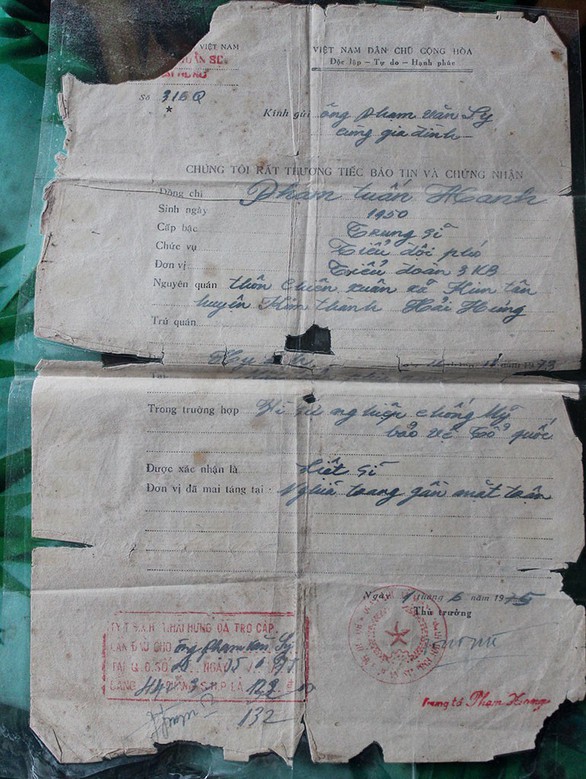 VIỆT NAM
VIỆT NAM DÂN CHỦ CỘNG HÒA
Độc lập - Tự do - Hạnh phúc
Số 316Q
*
Kính gửi ông Phạm Văn Lý
cùng gia đình
CHÚNG TÔI RẤT THƯƠNG TIẾC BÁO TIN VÀ CHỨNG NHẬN
Đồng chí Phạm Tuấn Hanh
Sinh ngày 1950
Cấp bậc Trung sĩ
Chức vụ Tiểu đội phó
Đơn vị Tiểu đoàn 3 KB
Nguyên quán thôn xuân xã Kim tân
huyện Kim thành Hải Hưng
Trú quán
1973
Trong trường hợp Vì sự nghiệp chống Mỹ
bảo vệ Tổ quốc
Được xác nhận là Liệt sĩ
Đơn vị đã mai táng tại: Nghĩa trang gần mặt trận
Ngày 1 tháng 6 năm 1975
Thủ trưởng
TY T.B.X.H HẢI HƯNG ĐÃ TRỢ CẤP
LẦN ĐẦU CHO ông Phạm Văn Lý
TẠI G.Đ.SỐ NGÀY 05
BẰNG
132
Trung tá Phạm